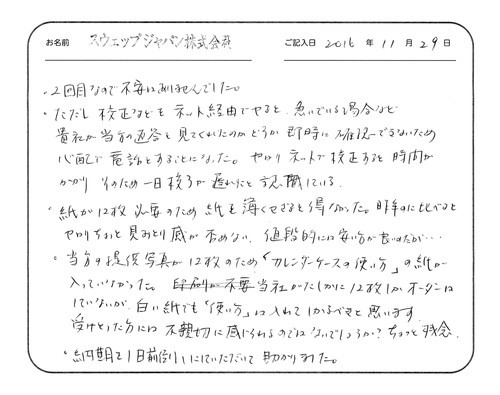 お名前 スウェップジャパン株式会社 ご記入日 2016 年 11 月 29 日
・2回目なので不安は別段なしでした。
・ただし校正などをネット経由でやると、急いでいる場合など
貴社が当方の返答を見てくれたのかどうか即時に確認できないため
心配で電話をすることになった。やはりネットで校正すると時間が
かかり そのため一日校了が遅れたと認識している。
・紙が12枚必要のため紙を薄くせざるを得なかった。昨年のに比べると
やはりちょっと見おとり感が否めない。値段的には安い方が良いのだが…
・当方の提供写真が12枚のため「カレンダーケースの使い方」の紙が
入っていなかった。当社がたしかに12枚しかオーダーは
していないが、白い紙でも「使い方」は入れておけるべきと思います。
受けとった方には不親切に感じられるのではないでしょうか?ちょっと残念。
・納期を1日前倒しにしていただいて助かりました。